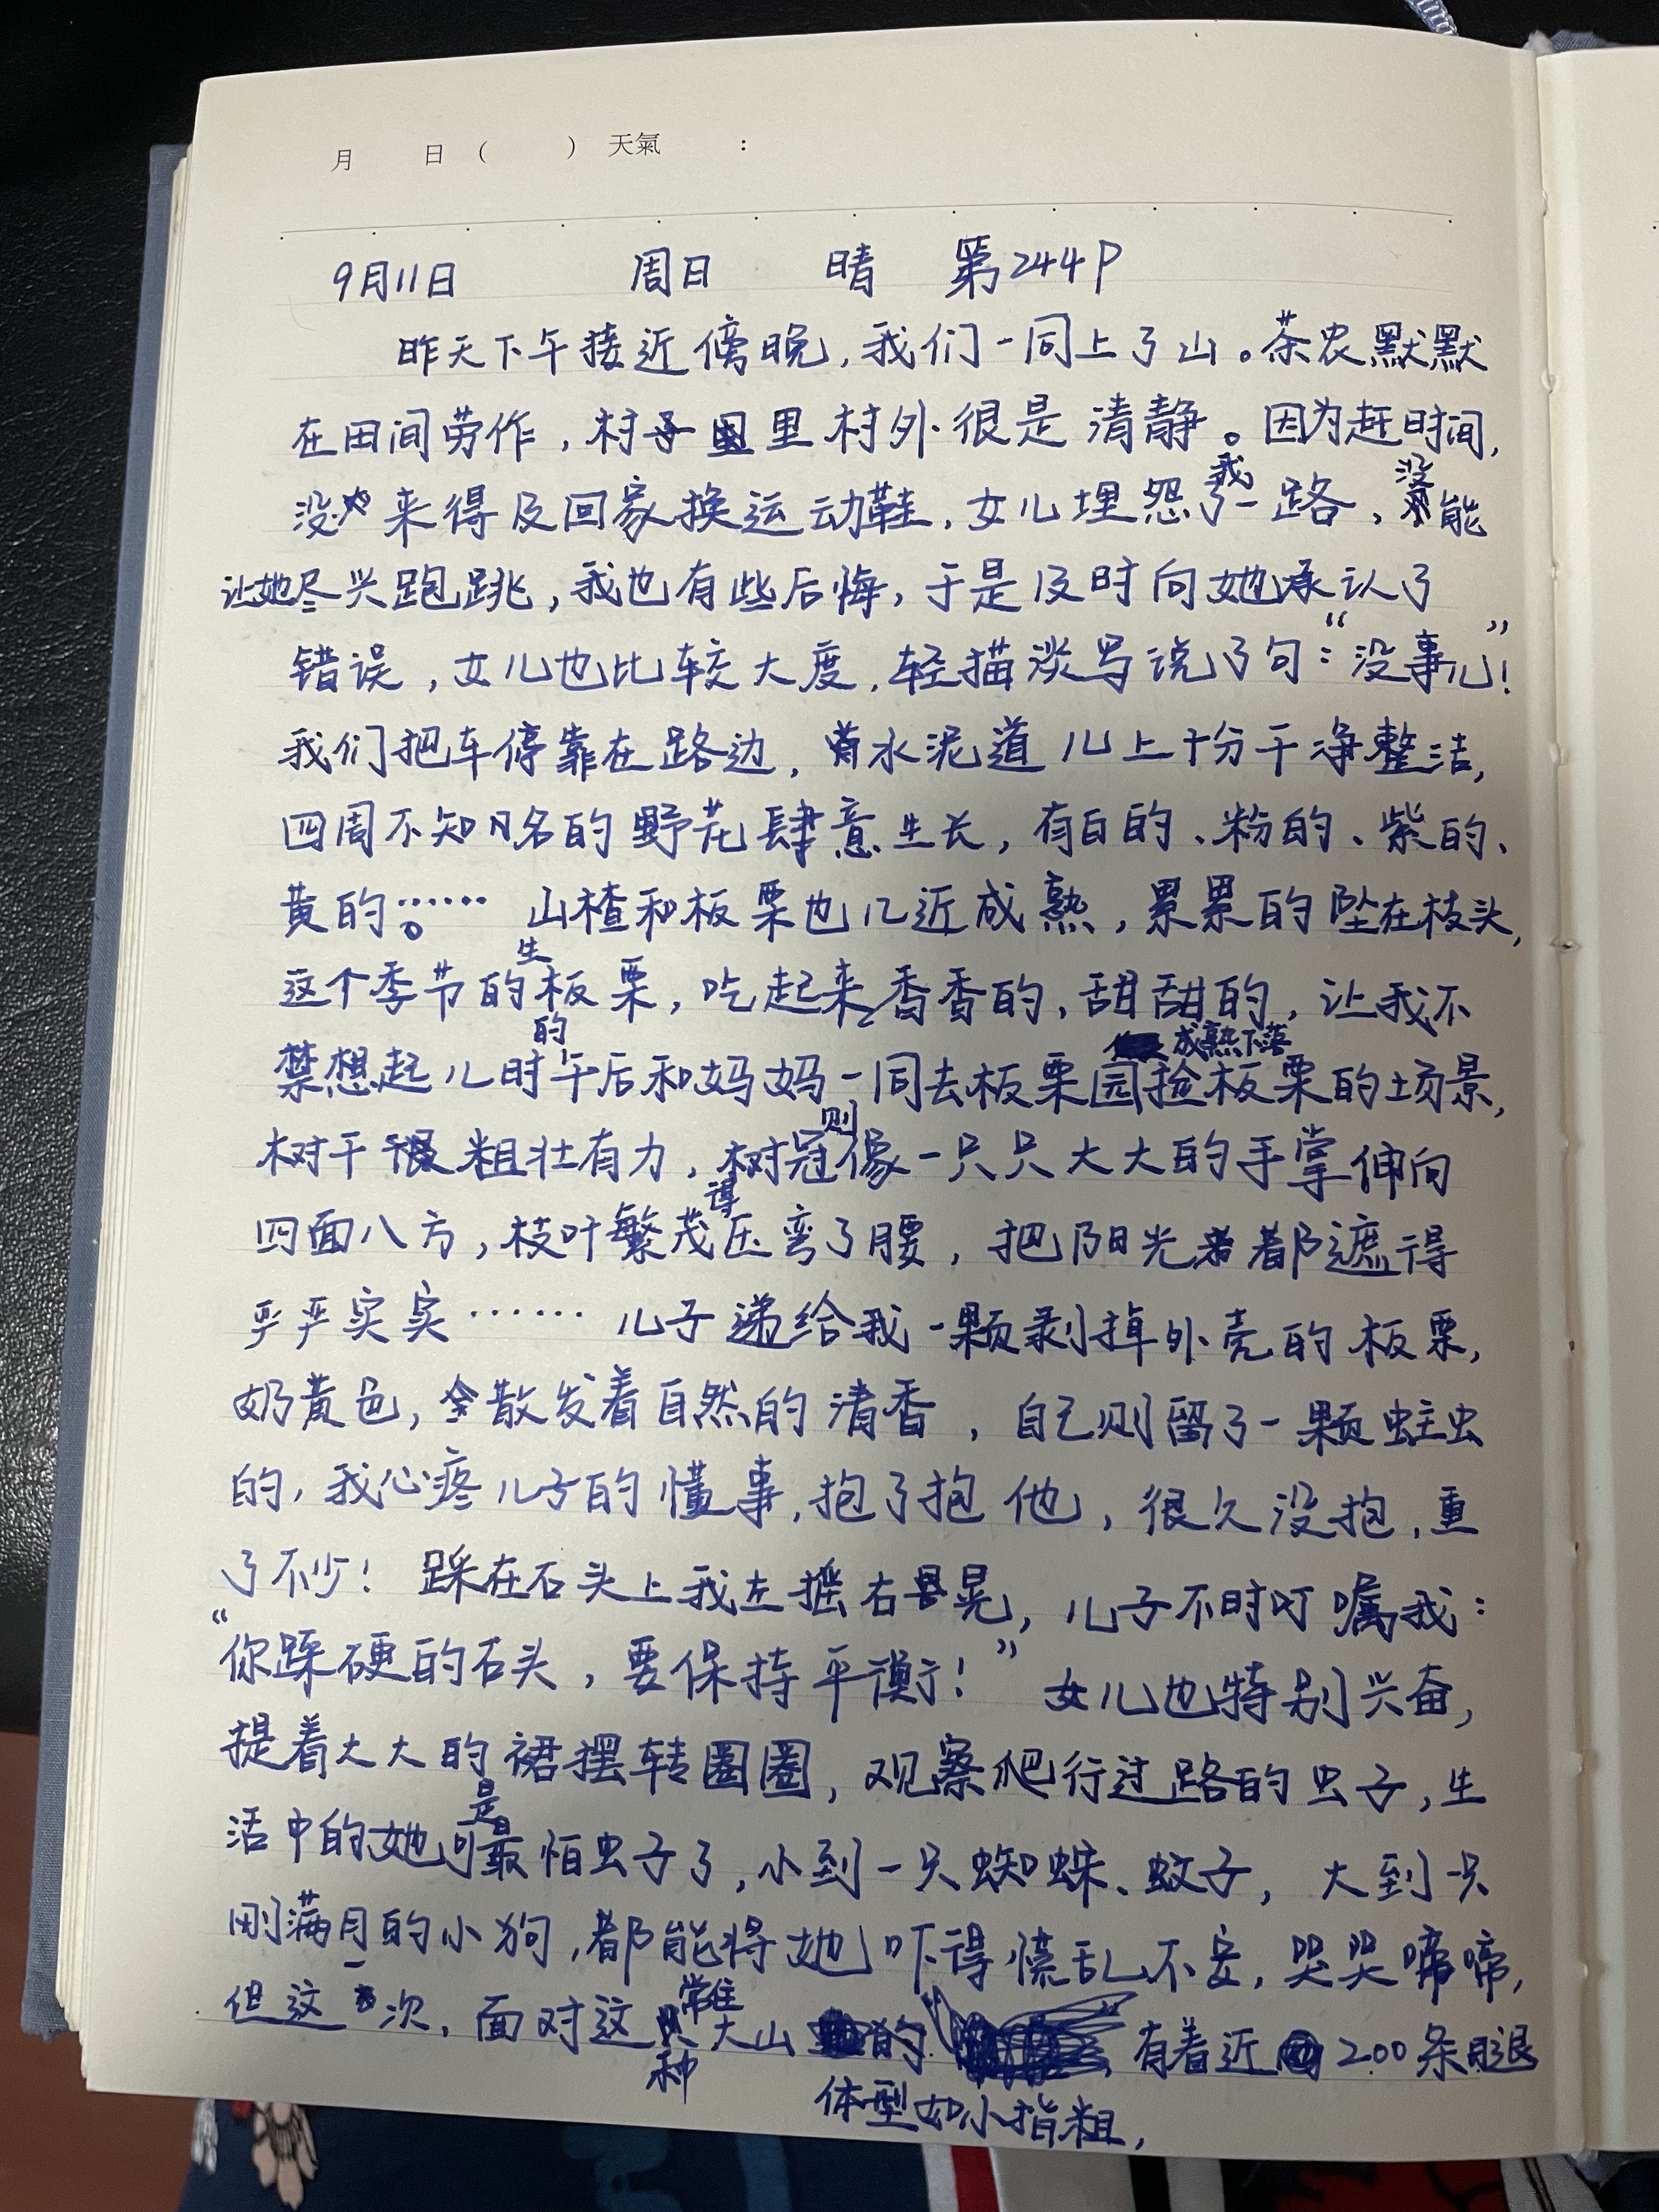 月 日 ( ) 天氣 :
9月11日 周日 晴 第244P
昨天下午接近傍晚,我们一同上了山。茶农默默
在田间劳作,村里村外很是清静。因为赶时间,
没来得及回家换运动鞋,女儿埋怨了我一路,没能
让她尽兴跑跳,我也有些后悔,于是及时向她承认了
错误,女儿也比较大度,轻描淡写说了句:“没事儿”!
我们把车停靠在路边,水泥道儿上十分干净整洁,
四周不知名的野花肆意生长,有白的、粉的、紫的、
黄的。…… 山楂和板栗也几近成熟,累累的坠在枝头,
这个季节的生板栗,吃起来香香的,甜甜的,让我不
禁想起儿时的午后和妈妈一同去板栗园捡成熟下落板栗的场景,
树干粗壮有力,树冠则像一只只大大的手掌伸向
四面八方,枝叶繁茂得压弯了腰,把阳光都遮得
严严实实…… 儿子递给我一颗剥掉外壳的板栗,
奶黄色,散发着自然的清香,自己则留了一颗蛀虫
的,我心疼儿子的懂事,抱了抱他,很久没抱,重
了不少!踩在石头上我左摇右晃,儿子不时叮嘱我:
“你踩硬的石头,要保持平衡!”女儿也特别兴奋,
提着大大的裙摆转圈圈,观察爬行过路的虫子,生
活中的她可是最怕虫子了,小到一只蜘蛛、蚊子,大到一只
刚满月的小狗,都能将她吓得慌乱不安,哭哭啼啼,
但这一次,面对这种常住大山的 有着近200条腿
体型如小指粗,